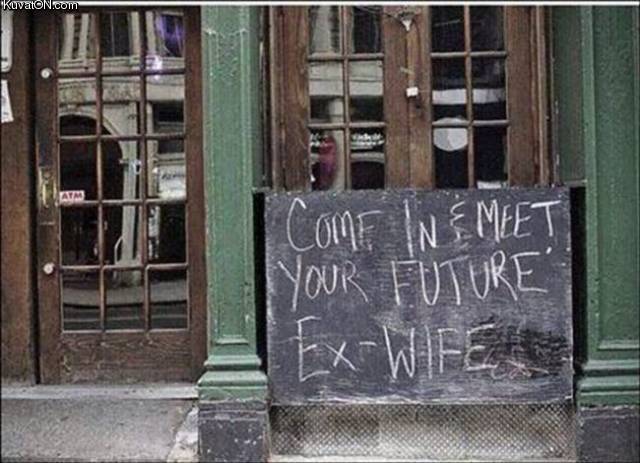 KuvatON.com
ATM
COME IN & MEET
YOUR FUTURE
EX-WIFE